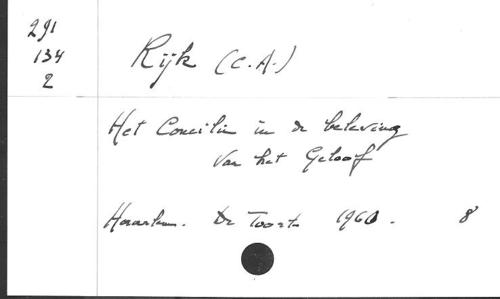 291
134
2
Rijk (C.A.)
Het Concilie in de beleving
van het Geloof
Haarlem. De Toorts 1960. 8°